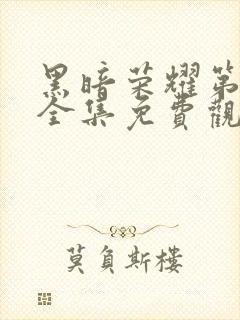 黑暗荣耀第
全集免費觀
莫負斯樓